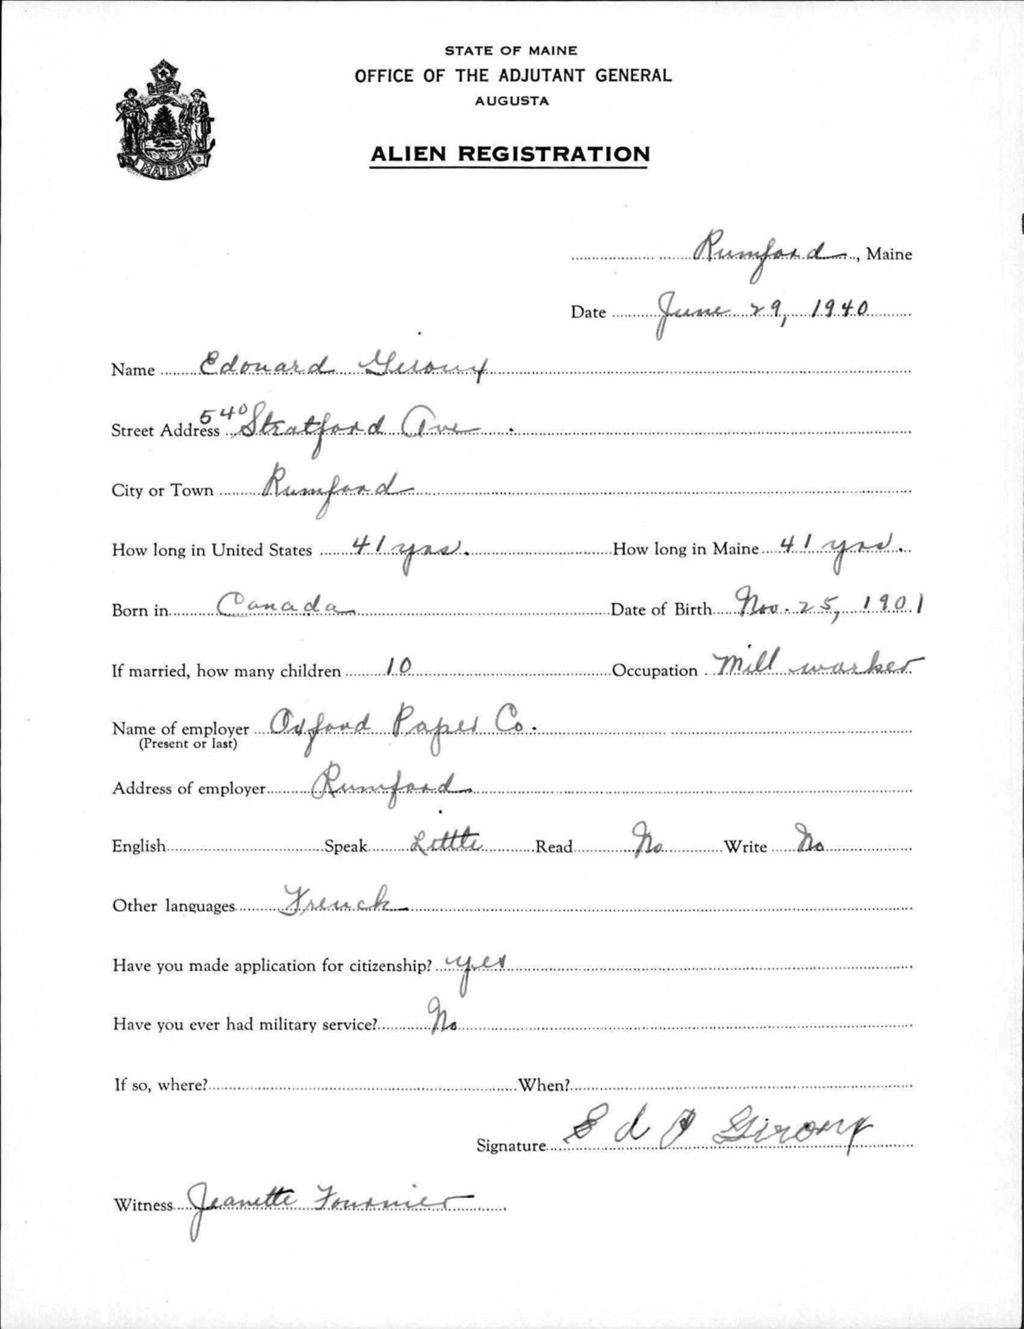 STATE OF MAINE
OFFICE OF THE ADJUTANT GENERAL
AUGUSTA
ALIEN REGISTRATION
MAINE
Rumford, Maine
Date June 29, 1940
Name Edouard Giroux
Street Address 540 Stratford Ave
City or Town Rumford
How long in United States 41 yrs. How long in Maine 41 yrs.
Born in Canada Date of Birth Nov. 25, 1901
If married, how many children 10 Occupation Mill worker
Name of employer Oxford Paper Co.
(Present or last)
Address of employer Rumford
English Speak Little Read No Write No
Other languages French
Have you made application for citizenship? yes
Have you ever had military service? No
If so, where? When?
Signature Ed
Witness Jeanette Fournier